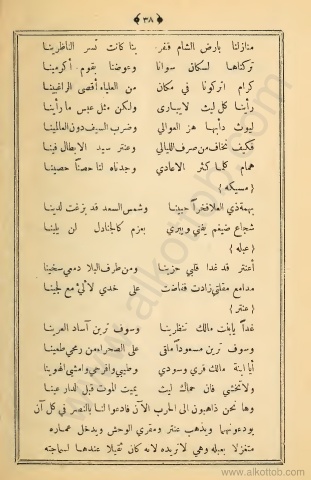 ﴿ ٣٨ ﴾
منازلنا بارض الشام قفر بنا كانت تسر الناظرينا
تركناها لسكان سوانا وعوضنا بقوم أكرمينا
كرام اتركونا في مكان من العلياء أقصى الراغبينا
رأينا كل ليث لا يبارى ولكن مثل عبس ما رأينا
ليوث دأبها هز العوالي وضرب السيف دون العالمينا
فكيف نخاف من صرف الليالي وعنتر سيد الابطال فينا
همام كلما كثر الاعادي وجدناه لنا حصناً حصينا
{ مسيكه }
بهمة ذي العلا فخراً حبينا وشمس السعد قد بزغت لدينا
شجاع ضيغم يفني ويبري بعزم كالجنادل لن يلينا
{ عبله }
أعنتر قد غدا قلبي حزينا ومن طرف البلا دمعي سخينا
مدامع مقلتي زادت ففاضت على خدي لآلئ مع لجينا
{ عنتر }
غداً يابنت مالك تنظرينا وسوف ترين آساد العرينا
وسوف ترين مسعوداً ملقى على الصحراء من رمحي طعينا
أيا ابنة مالك قري وسودي وطيبي وافرحي وامشي الهوينا
ولا تخشي فان حماك ليث يميت الموت قبل الدارعينا
وها نحن ذاهبون الى الحرب الآن فادعوا لنا بالنصر في كل آن
يودعونهما ويذهب عنتر ومقري الوحش ويدخل عماره
متغزلا بعبله وهي لا تريده لانه كان ثقيلا عندها لسماجته
alkottob.com
www.alkottob.com